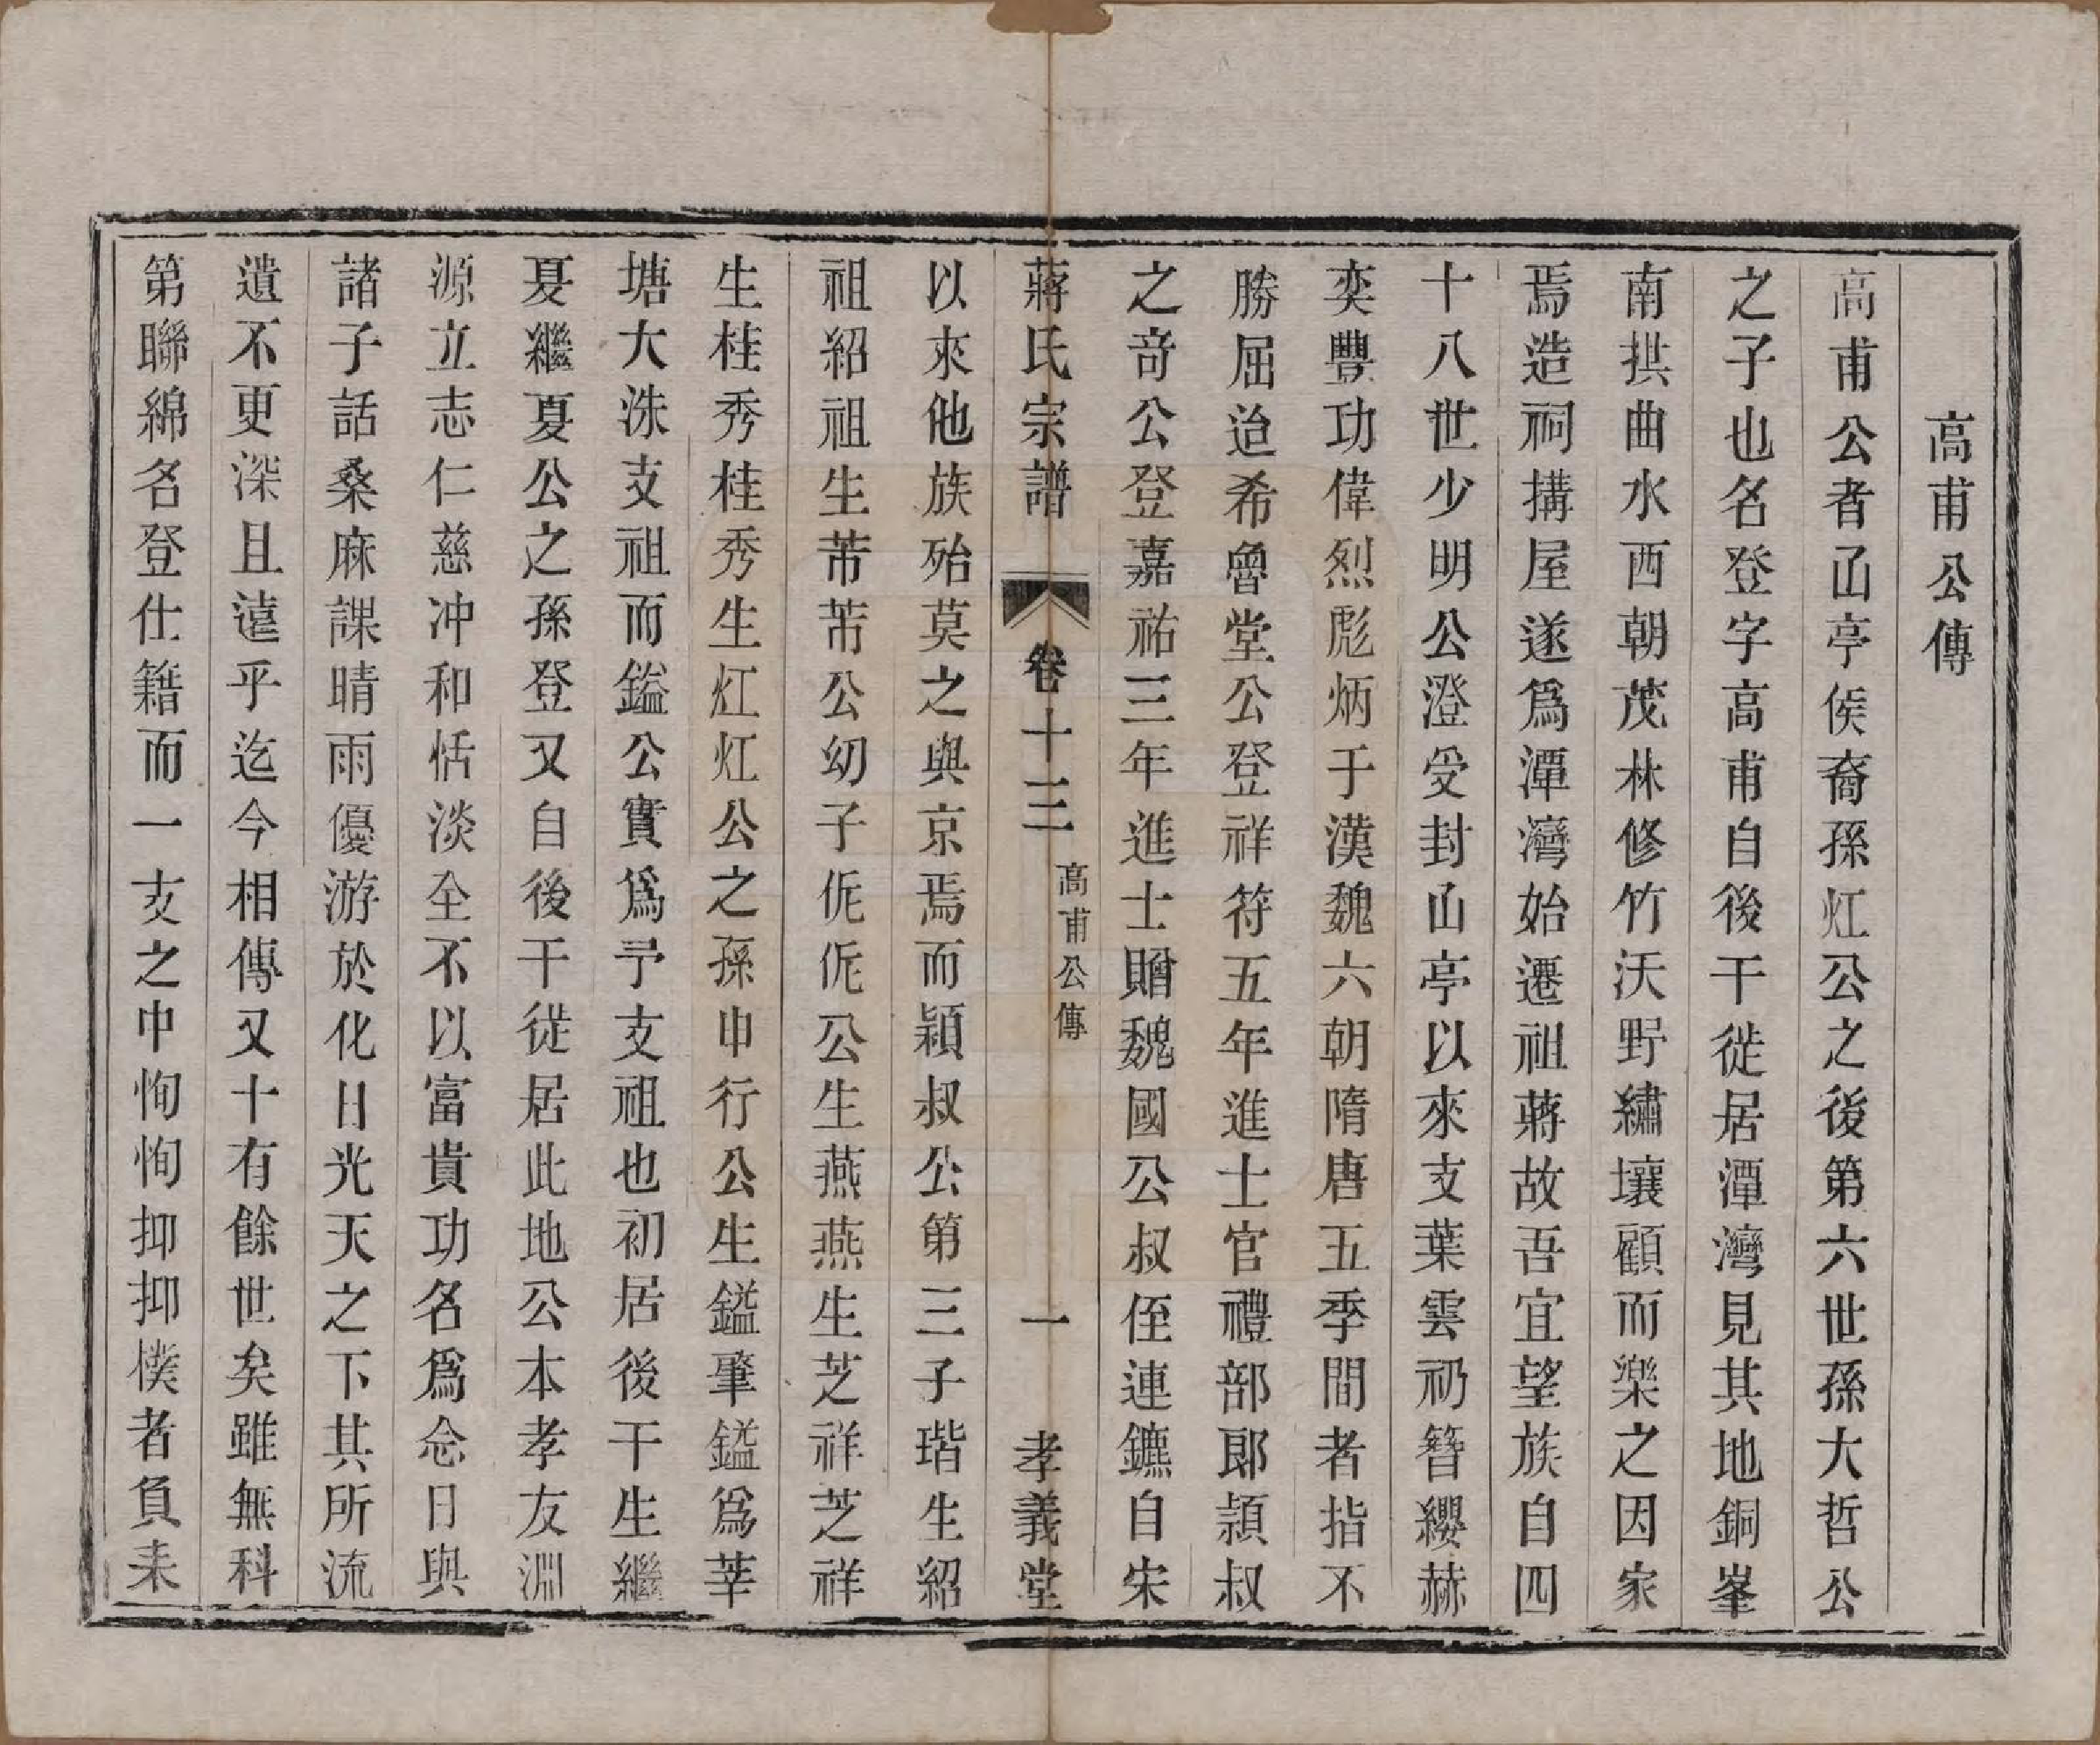 高甫公傳
高甫公者𠙽亭侯裔孫灴公之後第六世孫大哲公
之子也名登字高甫自後干徙居潭灣見其地銅峯
南拱曲水西朝茂林修竹沃野繡壤顧而樂之因家
焉造祠搆屋遂爲潭灣始遷祖蔣故吾宜望族自四
十八世少明公澄受封山亭以來支葉雲礽簪纓赫
奕豐功偉烈彪炳于漢魏六朝隋唐五季間者指不
勝屈迨希魯堂公登祥符五年進士官禮部郎頴叔
之奇公登嘉祐三年進士贈魏國公叔侄連鑣自宋
蔣氏宗譜 卷十三 高甫公傳 一 孝義堂
以來他族殆莫之與京焉而穎叔公第三子瑎生紹
祖紹祖生芾芾公幼子伲伲公生燕燕生芝祥芝祥
生桂秀桂秀生灴灴公之孫申行公生鎰肇鎰爲莘
塘大洙支祖而鎰公實爲予支祖也初居後干生繼
夏繼夏公之孫登又自後干徙居此地公本孝友淵
源立志仁慈冲和恬淡全不以富貴功名爲念日與
諸子話桑麻課晴雨優游於化日光天之下其所流
遺不更深且遠乎迄今相傳又十有餘世矣雖無科
第聯綿名登仕籍而一支之中恂恂抑抑樸者負耒